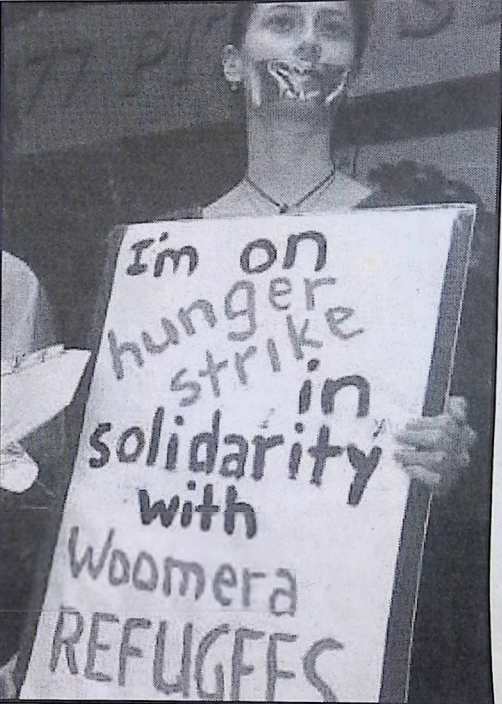 I'm on
hunger
strike
in
solidarity
with
Woomera
REFUGEES